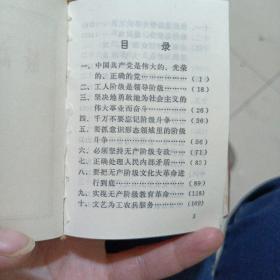 目录
一、中国共产党是伟大的、光荣
的、正确的党……(1)
二、工人阶级是领导阶级……(18)
三、坚决地勇敢地为社会主义的
伟大事业而奋斗……(26)
四、千万不要忘记阶级斗争……(36)
五、要抓意识形态领域里的阶级
斗争……(56)
六、必须坚持无产阶级专政……(71)
七、正确处理人民内部矛盾……(82)
八、要把无产阶级文化大革命进
行到底……(89)
九、实现无产阶级教育革命……(128)
十、文艺为工农兵服务……(169)